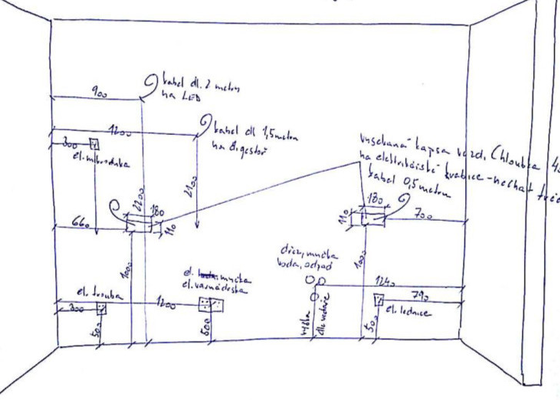 kabel dl. 2 metru
na LED
900
kabel dl 1,5 metru
na digestoř
1200
300
el. mikrovlnka
vysekaná kapsa vzad. Chloubka
na elektrikářské krabice - nechat
kabel 0,5 metru
2200
2100
180
110
660
180
110
700
1000
1000
dřez, myčka
voda, odpad
el. myčka
el. varná deska
1240
790
el. trouba
300
1200
el. lednice
500
500
výška